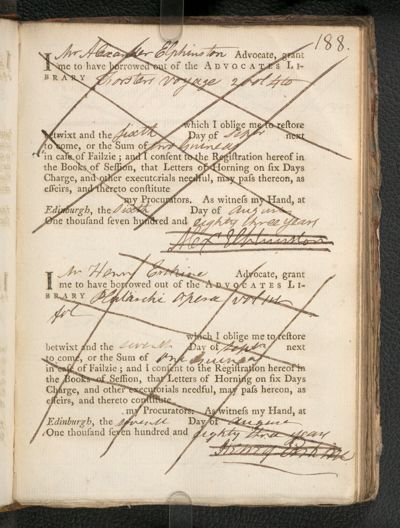 188.
I Mr Alexander Elphinston Advocate, grant
me to have borrowed out of the ADVOCATES LI-
BRARY Forsters Voyage 2 vol 4to
which I oblige me to reſtore
betwixt and the sixth Day of Septr next
to come, or the Sum of two Guineas
in caſe of Failzie; and I conſent to the Regiſtration hereof in
the Books of Seſſion, that Letters of Horning on ſix Days
Charge, and other executorials needful, may paſs thereon, as
effeirs, and thereto conſtitute
my Procurators. As witneſs my Hand, at
Edinburgh, the sixth Day of August
One thouſand ſeven hundred and eighty three years
Alexr Elphinston
I Mr Henry Erskine Advocate, grant
me to have borrowed out of the ADVOCATES LI-
BRARY Opera vol
fol
which I oblige me to reſtore
betwixt and the seventh Day of Septr next
to come, or the Sum of one guinea
in caſe of Failzie; and I conſent to the Regiſtration hereof in
the Books of Seſſion, that Letters of Horning on ſix Days
Charge, and other executorials needful, may paſs hereon, as
effeirs, and thereto conſtitute
my Procurators. As witneſs my Hand, at
Edinburgh, the seventh Day of August
One thouſand ſeven hundred and eighty three years
Henry Erskine